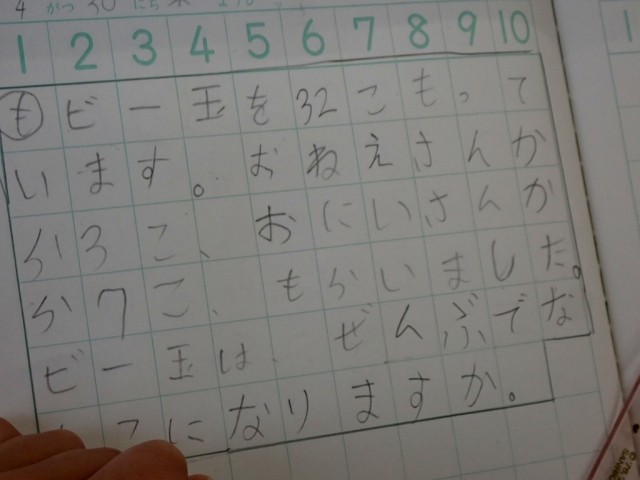 4 がつ 30 にち 木
1 2 3 4 5 6 7 8 9 10
も ビー玉を32こもって
います。おねえさんか
ら3こ、おにいさんか
ら7こ、もらいました。
ビー玉は、ぜんぶでな
こになりますか。
1